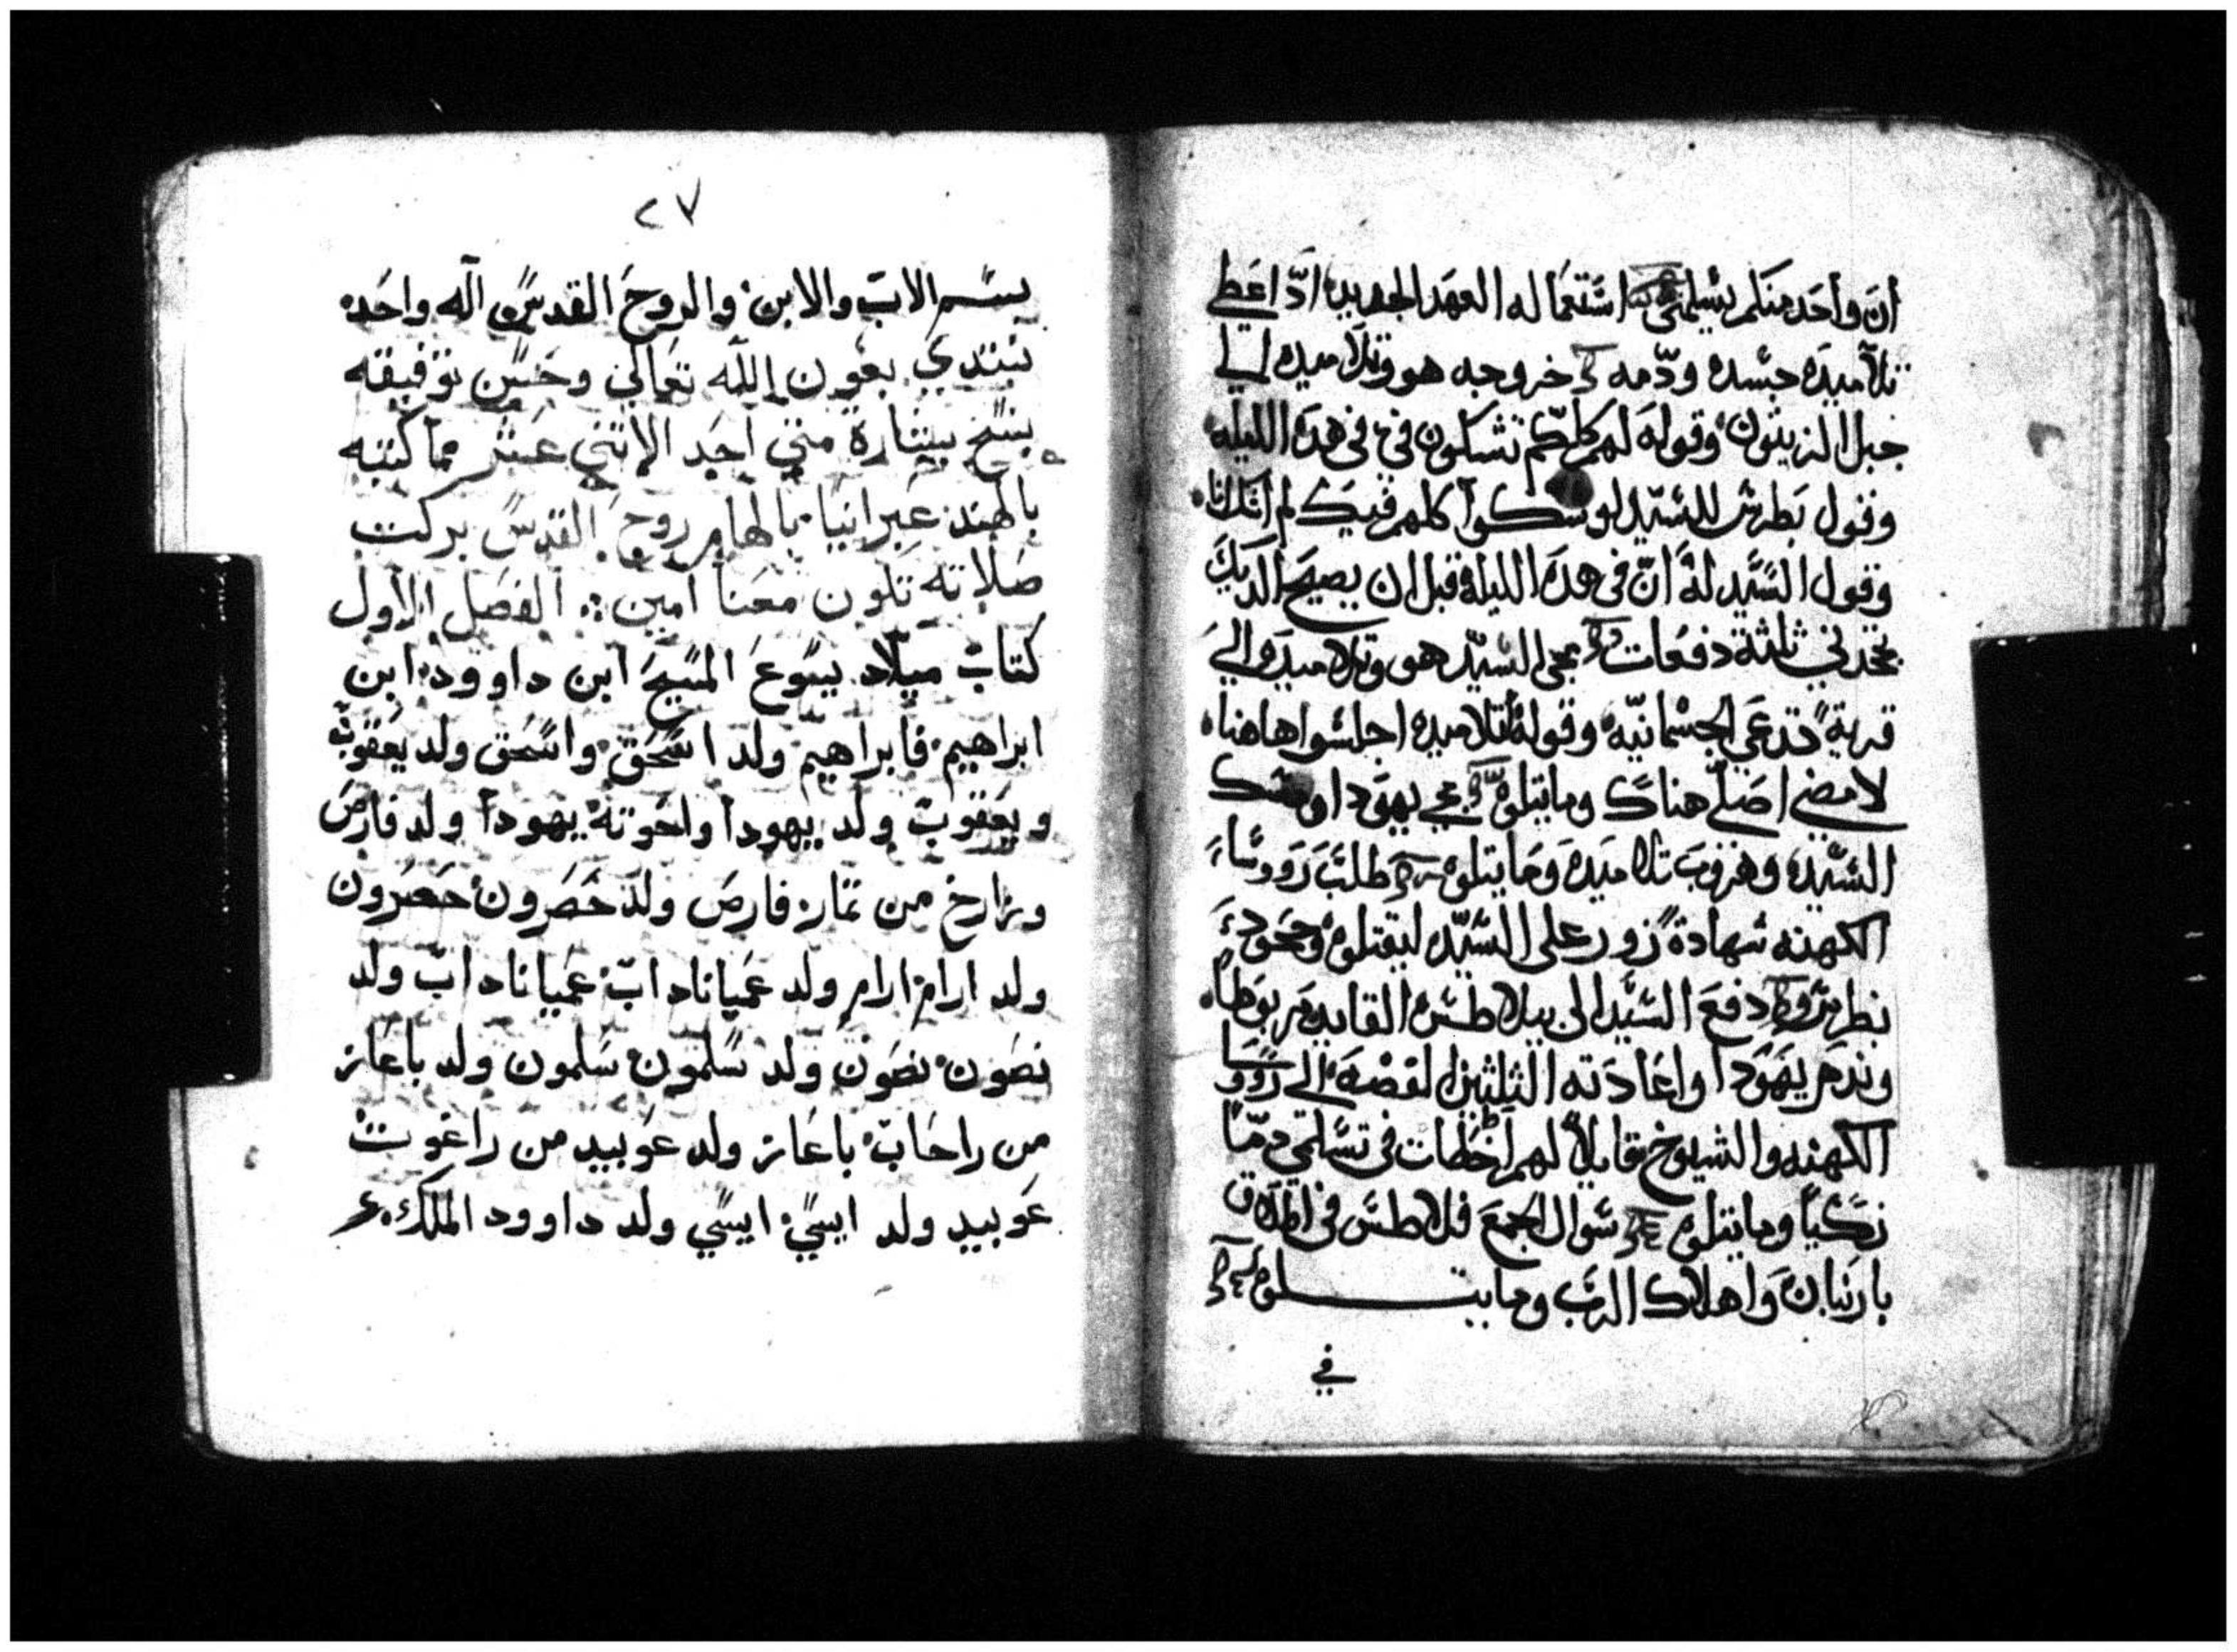 ان واحد منكم يسلمني اشتماله العهد الجديد اذ اعطي
تلاميده جسده ودمه خروجه هو وتلاميده الي
جبل الزيتون وقوله لهم كلكم تشكون في في هده الليله
وقول بطرس للسيد لو شكوا كلهم فيك لم اشك انا
وقول السيد له ان في هده الليله قبل ان يصيح الديك
تجحدني ثلثة دفعات مجي السيد هو وتلاميده الي
قرية تدعي الجسمانيه وقوله لتلاميده اجلسوا هاهنا
لامضي اصلي هناك وما يتلوه مجي يهودا ومسك
السيد وهروب تلاميده وما يتلوه طلب رووسا
الكهنه شهادة زور علي السيد ليقتلوه وجحود
بطرس دفع السيد الي بيلاطس القايد مربوطا
وندم يهودا واعادته الثلثين الفضه الي رووسا
الكهنه والشيوخ قايلا لهم اخطات في تسليمي دما
زكيا وما يتلوه سوال الجمع فلاطس في اطلاق
بارنابان واهلاك الرب وما يتلوه
في
٢٧
بسم الاب والابن والروح القدس اله واحد
نبتدي بعون الله تعالي وحسن توفيقه
بنسخ بشارة متي احد الاتني عشر مما كتبه
بالهند عبرانيا بالهام روح القدس بركت
صلاته تكون معنا امين الفصل الاول
كتاب ميلاد يسوع المسيح ابن داوود ابن
ابراهيم فابراهيم ولد اسحق واسحق ولد يعقوب
ويعقوب ولد يهودا واخوته يهودا ولد فارص
وزارخ من تمار فارص ولد حصرون حصرون
ولد ارام ارام ولد عميناداب عميناداب ولد
نصون نصون ولد سلمون سلمون ولد باعاز
من راحاب باعاز ولد عوبيد من راغوت
عوبيد ولد ايسي ايسي ولد داوود الملك